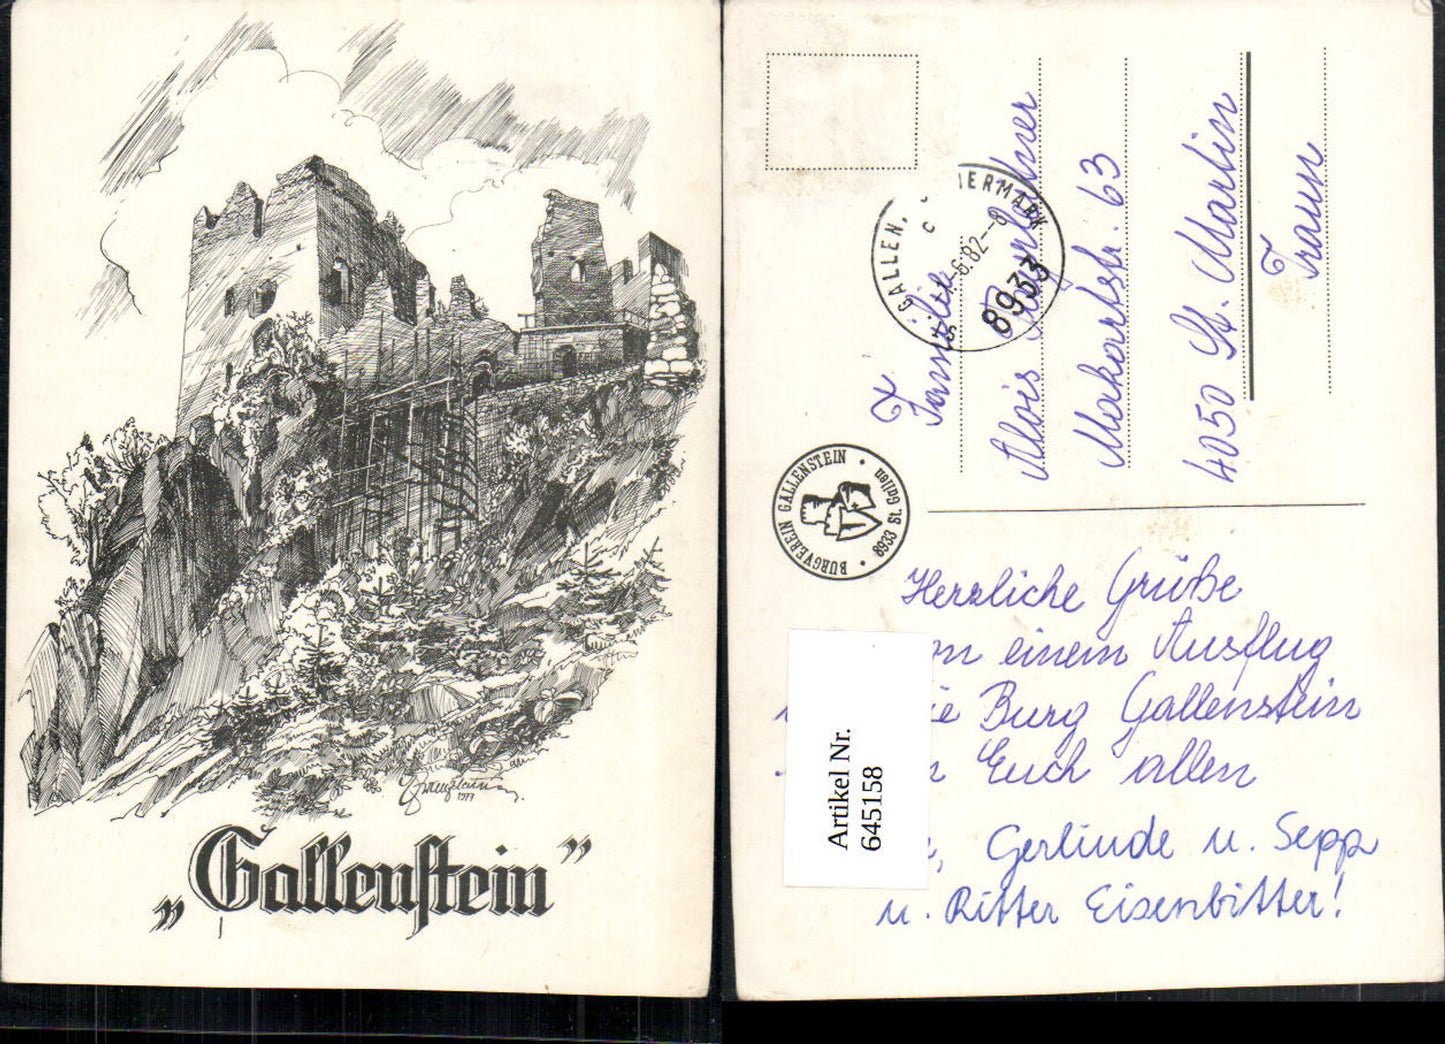 1977
„Gallenstein”
GALLEN, IERMARK
c
-6.82--8
8933
Familie
Alois
Makartstr. 63
4050 St. Martin
Traun
BURGVEREIN GALLENSTEIN • 8933 St. Gallen •
Herzliche Grüße
einem Ausflug
Burg Gallenstein
Euch allen
Gerlinde u. Sepp
u. Ritter Eisenbitter!
Artikel Nr.
645158